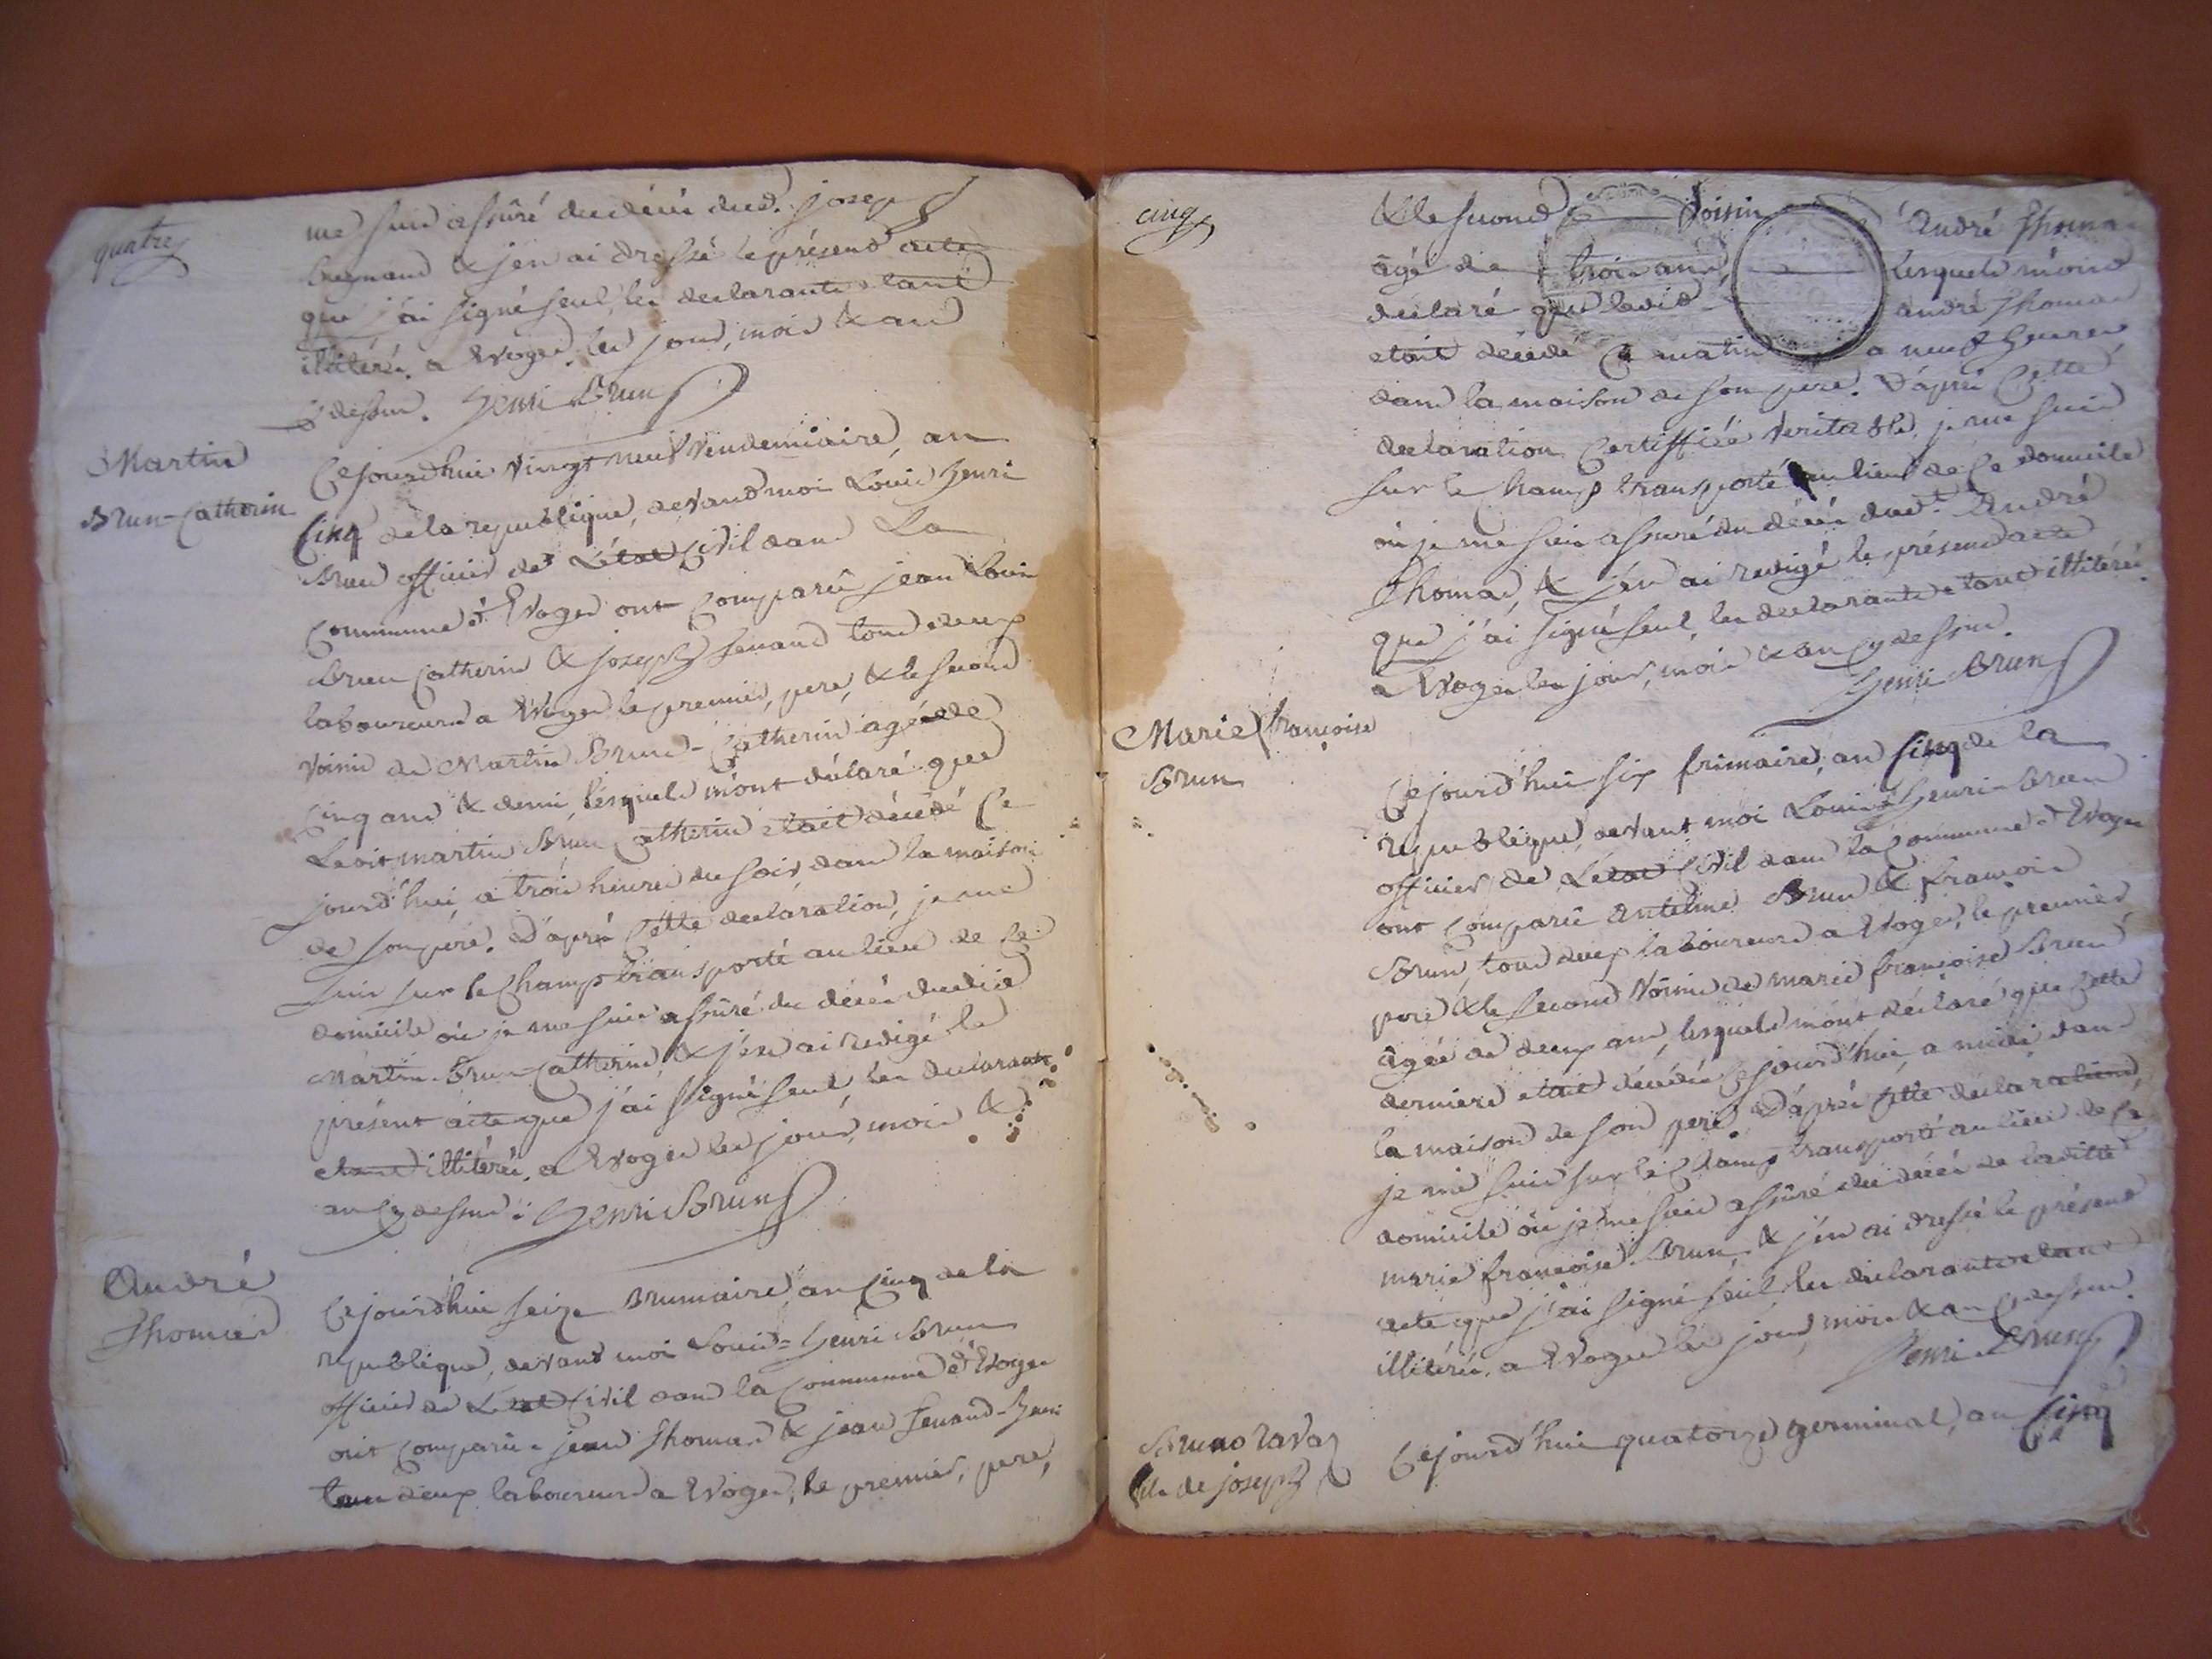 quatre
me suis assûré du décès dud. joseph
& j'en ai dressé le présend acte
que j'ai signé seul, les declarants étant
illitérés. a Evoges les jour, mois & an
cy dessus. Henri Brun
Martin
Brun-Catherin
Cejourd'hui vingt neuf vendemiaire, an
Cinq de la republique, devand moi Louis Henri
Brun officier de L'état Civil dans La
Commune d'Evoges ont Comparû jean Louis
Brun Catherin & joseph tous deux
laboureurs a Evoges le premier, pere, & le second
voisin de Martin Brun-Catherin agé de
Cinq ans & demi, lesquels m'ont déclaré que
Ledit martin Brun Catherin était décédé Ce
jourd'hui, a trois heures du soir dans la maison
de son pere. D'après Cette declaration, je me
suis sur le Champ transporté au lieu de Ce
domicile où je me suis assûré du décès dudit
Martin Brun-Catherin, & j'en ai redigé le
présent acte que j'ai signé seul, les declarants
étant illitérés, a Evoges les jour, mois &
an Cy dessus. Henri Brun
André
Thomas
Cejourd'hui seize Brumaire, an Cinq de la
republique, devant moi Louis=Henri Brun
officier de L'état Civil dans la Commune d'Evoges
ont Comparû jean Thomas & jean
tous deux laboureurs a Evoges, le premier, pere,
cinq
& le second voisin André Thomas
âgé de trois ans, lesquels m'ont
déclaré que ledit andré Thomas
etait décédé Ce matin a neuf heures
dans la maison de son pere. D'après Cette
declaration Certiffiée veritable, je me suis
sur le Champ transporté au lieu de Ce domicile
où je me suis assuré du décès dudt. André
Thomas, & j'en ai redigé le présend acte
que j'ai signé seul, les declarants étant illitérés.
a Evoges les jour, mois & an Cy dessus.
Henri Brun
Marie françoise
Brun
Cejourd'hui six frimaire, an Cinq de la
republique, devant moi Louis Henri Brun
officier de L'état Civil dans la Commune d'Evoges
ont Comparû Antelme Brun & françois
Brun, tous deux laboureurs a Evoges, le premier
pere & le second voisin de marie françoise Brun
âgée de deux ans, lesquels m'ont déclaré que Cette
derniere etait décédée Cejourd'hui, a midi dans
la maison de son pere. D'après Cette déclaration,
je me suis sur le Champ transporté au lieu de Ce
domicile où je me suis assûré du décès de laditte
marie françoise Brun, & j'en ai dressé le présend
acte que j'ai signé seul, les déclarants étant
illitérés, a Evoges les jour, mois & an Cy dessus.
Henri Brun
Bruno Ravaz
fils de joseph
Cejourd'hui quatorze germinal, an Cinq